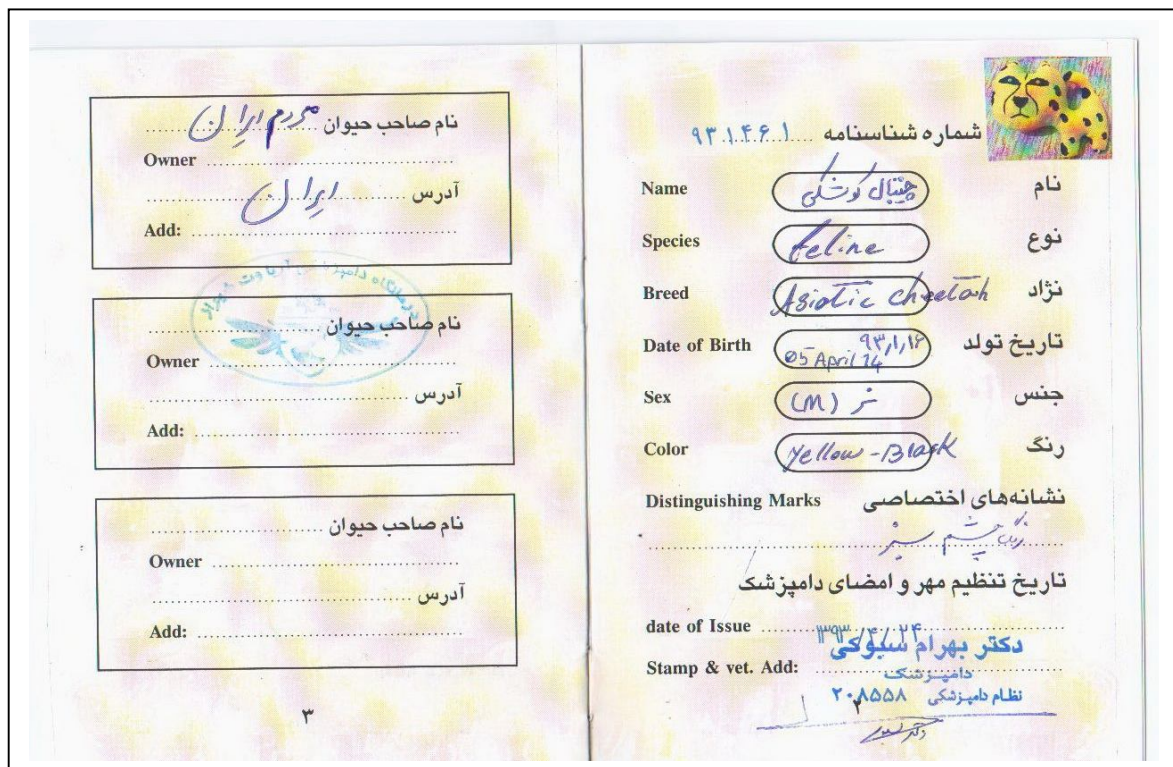 نام صاحب حیوان مردم ایران
Owner
آدرس ایران
Add:
نام صاحب حیوان
Owner
آدرس
Add:
نام صاحب حیوان
Owner
آدرس
Add:
۳
شماره شناسنامه ۹۳۱۴۶۱
Name چیتال کوشکی نام
Species feline نوع
Breed Asiatic cheetah نژاد
Date of Birth ۹۳,۱,۱۶ تاریخ تولد
05 April 14
Sex (M) نر جنس
Color Yellow-Black رنگ
Distinguishing Marks نشانه‌های اختصاصی
رنگ چشم سبز
تاریخ تنظیم مهر و امضای دامپزشک
date of Issue ۱۳۹۳/۴/۲۴
دکتر بهرام سبوکی
Stamp & vet. Add: دامپزشک
نظام دامپزشکی ۲۰۸۵۵۸
۲